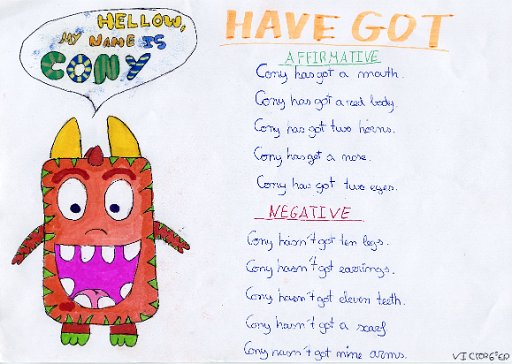 HELLOW,
MY NAME IS
CONY
HAVE GOT
AFFIRMATIVE
Cony has got a mouth.
Cony has got a red body.
Cony has got two horns.
Cony has got a nose.
Cony has got two eyes.
NEGATIVE
Cony hasn't got ten legs.
Cony hasn't got earrings.
Cony hasn't got eleven teeth.
Cony hasn't got a scarf
Cony hasn't got nine arms.
VICTOR 6°